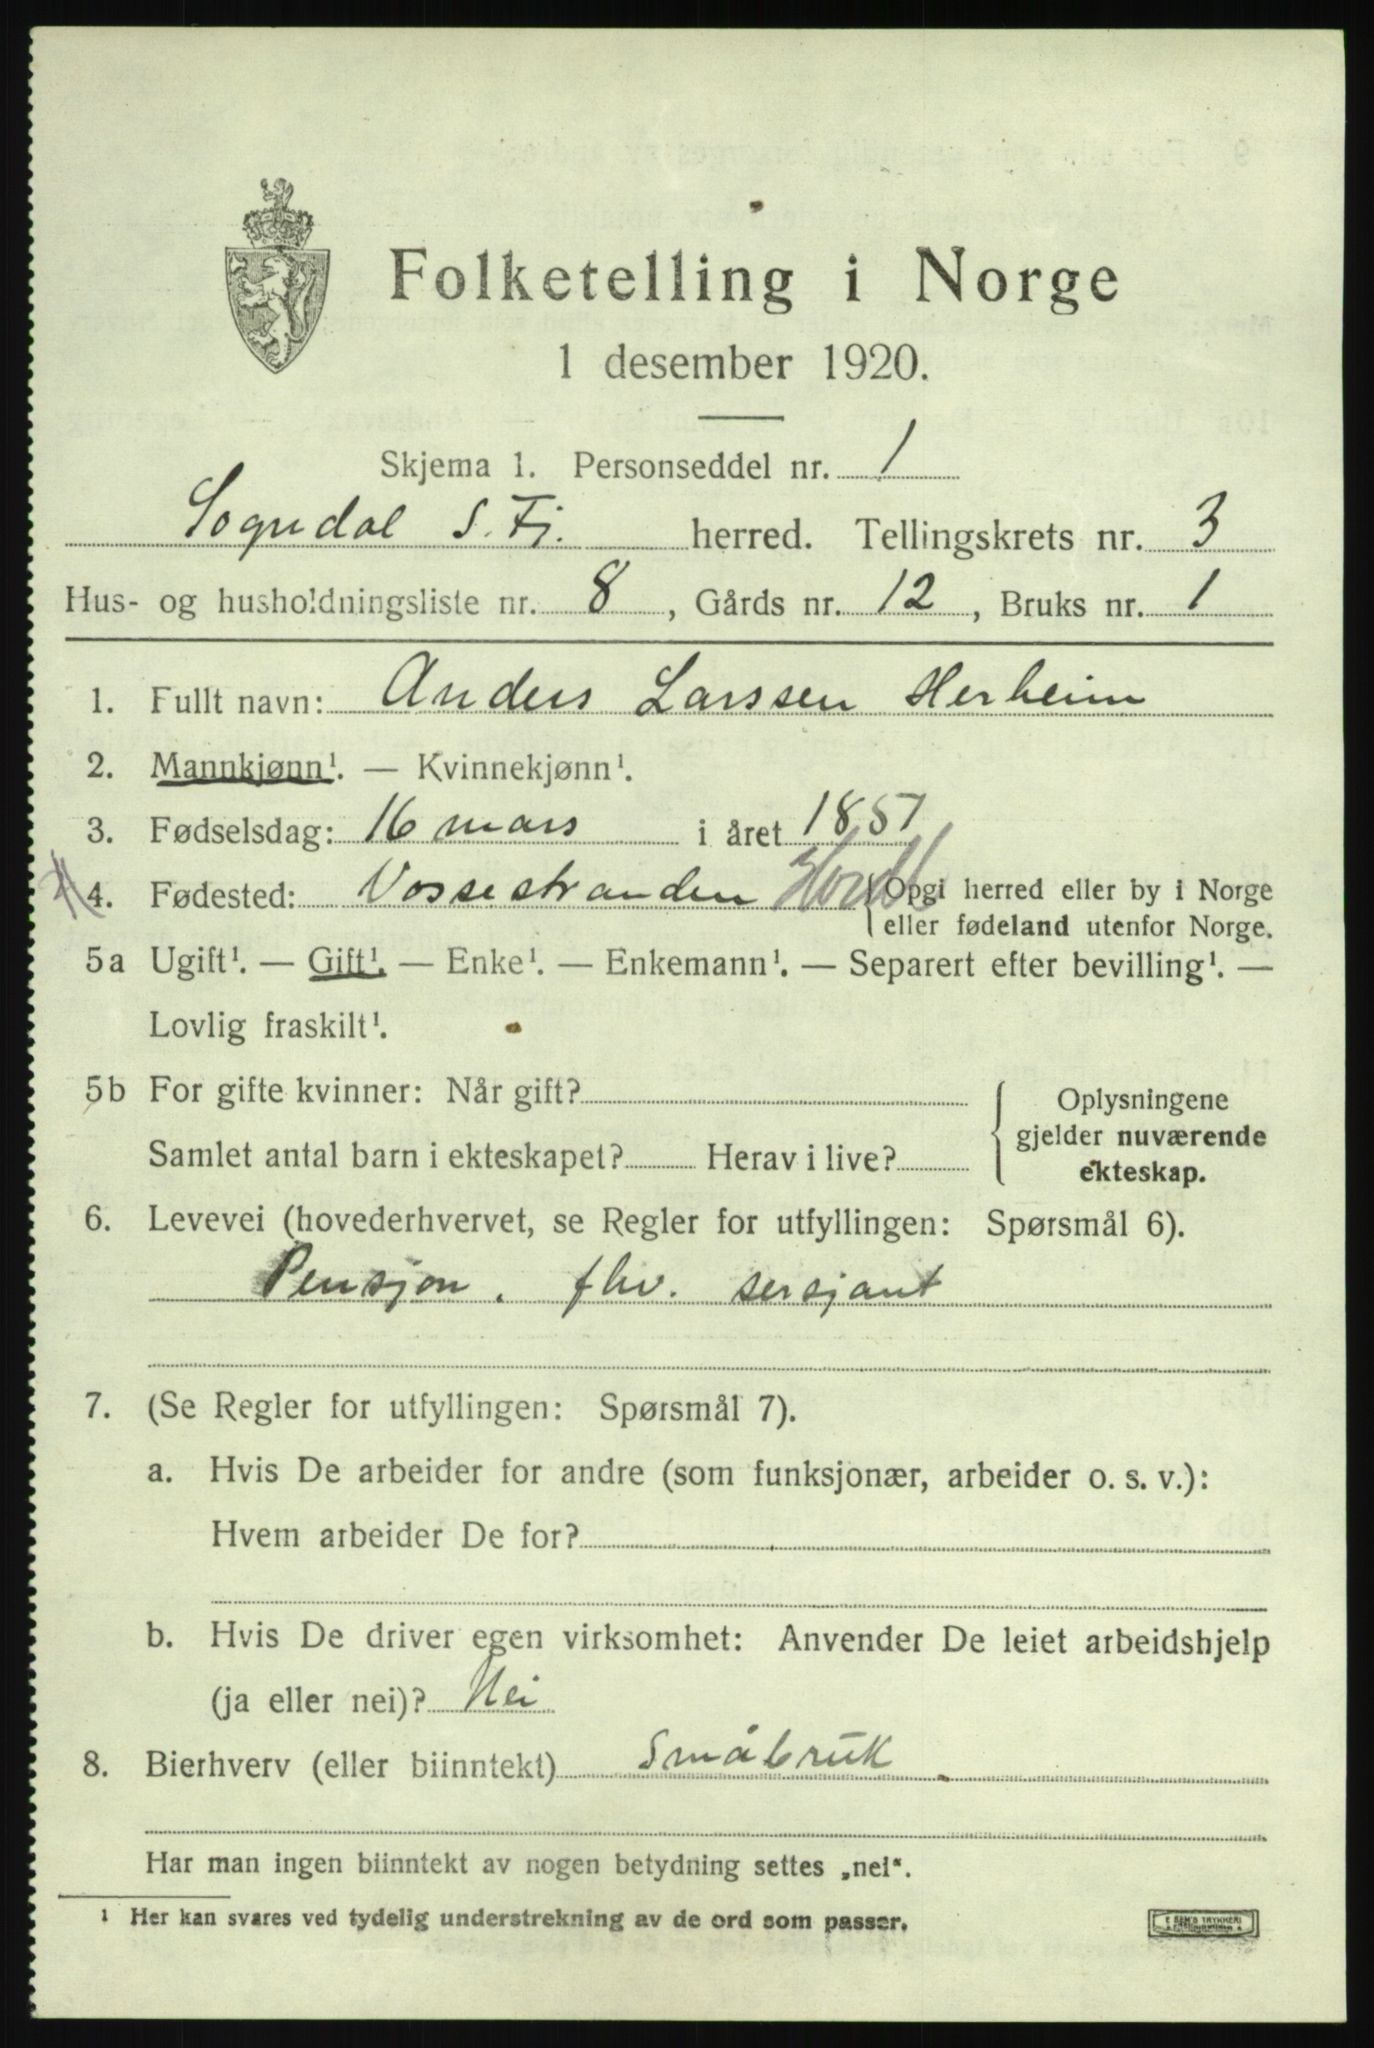 Folketelling i Norge
1 desember 1920.
Skjema 1. Personseddel nr. 1
Sogndal S. Fj. herred. Tellingskrets nr. 3
Hus- og husholdningsliste nr. 8, Gårds nr. 12, Bruks nr. 1
1. Fullt navn: Anders Larssen Herheim
2. Mannkjønn¹. — Kvinnekjønn¹.
3. Fødselsdag: 16 mars i året 1857
4. Fødested: Vossestranden Hordl {Opgi herred eller by i Norge
eller fødeland utenfor Norge.
5a Ugift¹. — Gift¹. — Enke¹. — Enkemann¹. — Separert efter bevilling¹. —
Lovlig fraskilt¹.
5b For gifte kvinner: Når gift?
Samlet antal barn i ekteskapet? Herav i live?
Oplysningene
gjelder nuværende
ekteskap.
6. Levevei (hovederhvervet, se Regler for utfyllingen: Spørsmål 6).
Pensjon. fhv. sersjant
7. (Se Regler for utfyllingen: Spørsmål 7).
a. Hvis De arbeider for andre (som funksjonær, arbeider o. s. v.):
Hvem arbeider De for?
b. Hvis De driver egen virksomhet: Anvender De leiet arbeidshjelp
(ja eller nei)? Nei
8. Bierhverv (eller biinntekt) Småbruk
Har man ingen biinntekt av nogen betydning settes „nei“.
¹ Her kan svares ved tydelig understrekning av de ord som passer.